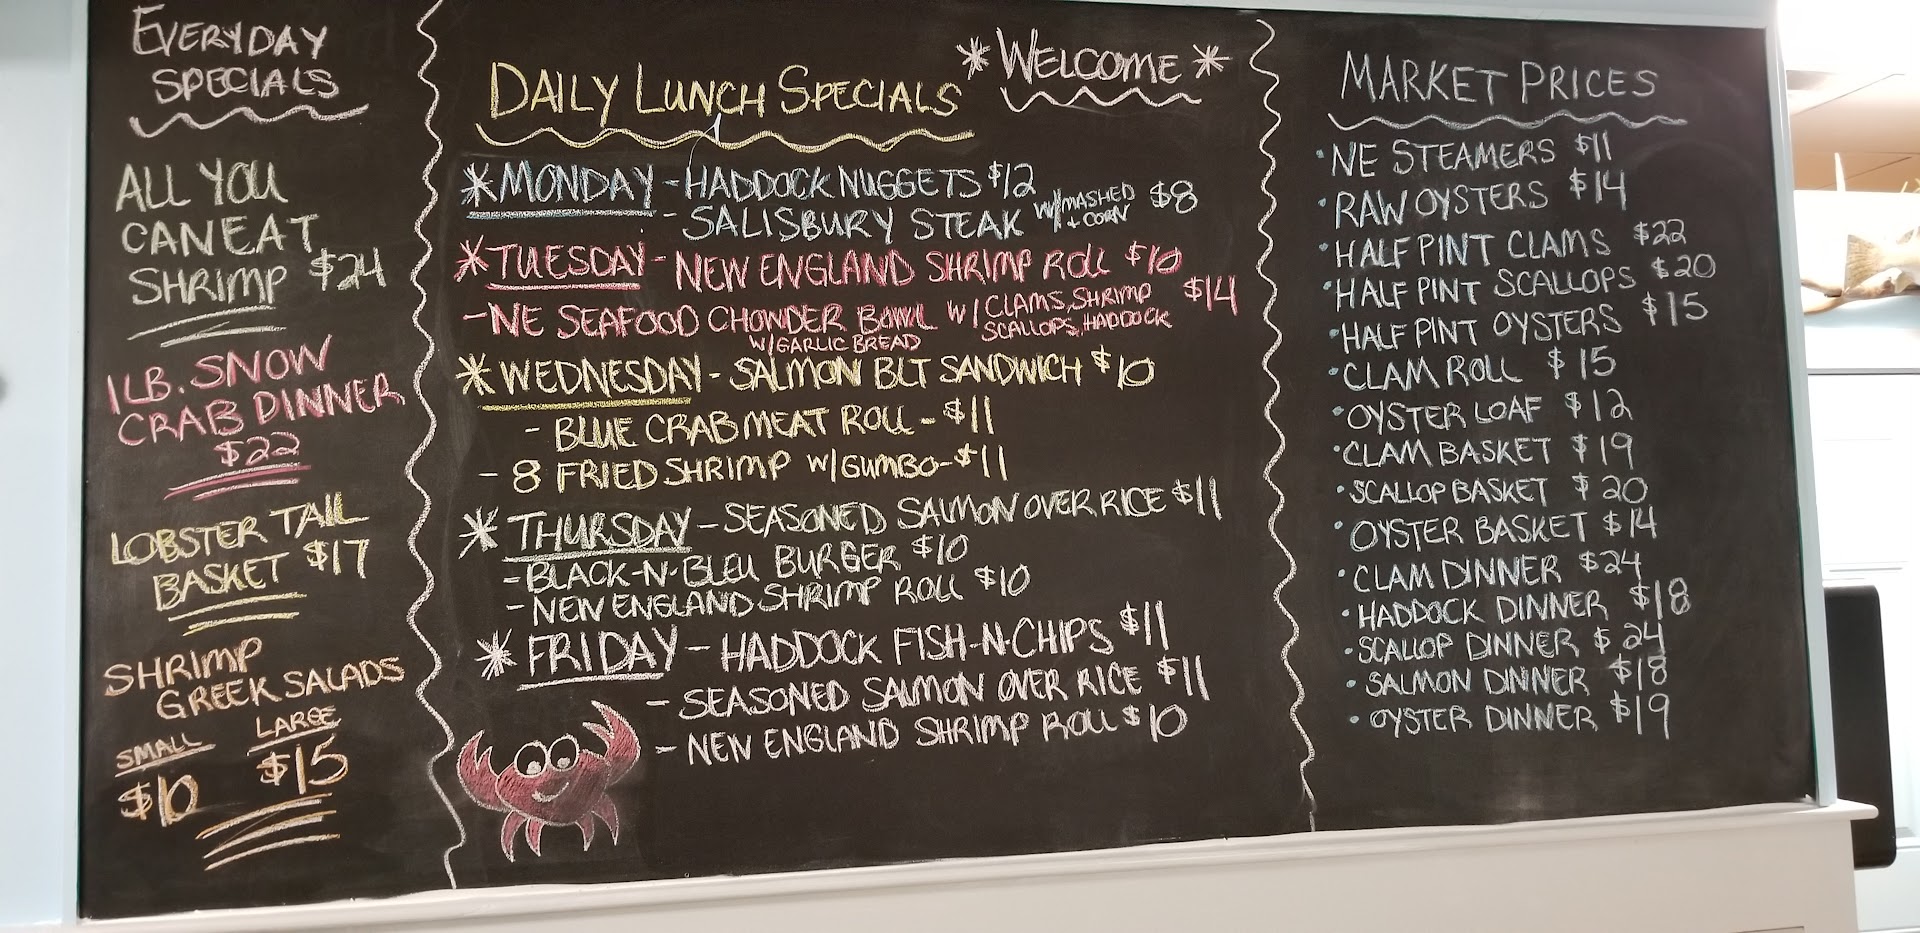 EVERYDAY
SPECIALS
ALL YOU
CAN EAT
SHRIMP $24
1 LB. SNOW
CRAB DINNER
$22
LOBSTER TAIL
BASKET $17
SHRIMP
GREEK SALADS
SMALL LARGE
$10 $15
*WELCOME*
DAILY LUNCH SPECIALS
*MONDAY - HADDOCK NUGGETS $12
- SALISBURY STEAK W/MASHED + CORN $8
*TUESDAY - NEW ENGLAND SHRIMP ROLL $10
- NE SEAFOOD CHOWDER BOWL W/ CLAMS, SHRIMP $14
SCALLOPS, HADDOCK
W/GARLIC BREAD
*WEDNESDAY - SALMON BLT SANDWICH $10
- BLUE CRAB MEAT ROLL - $11
- 8 FRIED SHRIMP W/GUMBO - $11
*THURSDAY - SEASONED SALMON OVER RICE $11
- BLACK-N-BLEU BURGER $10
- NEW ENGLAND SHRIMP ROLL $10
*FRIDAY - HADDOCK FISH-N-CHIPS $11
- SEASONED SALMON OVER RICE $11
- NEW ENGLAND SHRIMP ROLL $10
MARKET PRICES
• NE STEAMERS $11
• RAW OYSTERS $14
• HALF PINT CLAMS $22
• HALF PINT SCALLOPS $20
• HALF PINT OYSTERS $15
• CLAM ROLL $15
• OYSTER LOAF $12
• CLAM BASKET $19
• SCALLOP BASKET $20
• OYSTER BASKET $14
• CLAM DINNER $24
• HADDOCK DINNER $18
• SCALLOP DINNER $24
• SALMON DINNER $18
• OYSTER DINNER $19